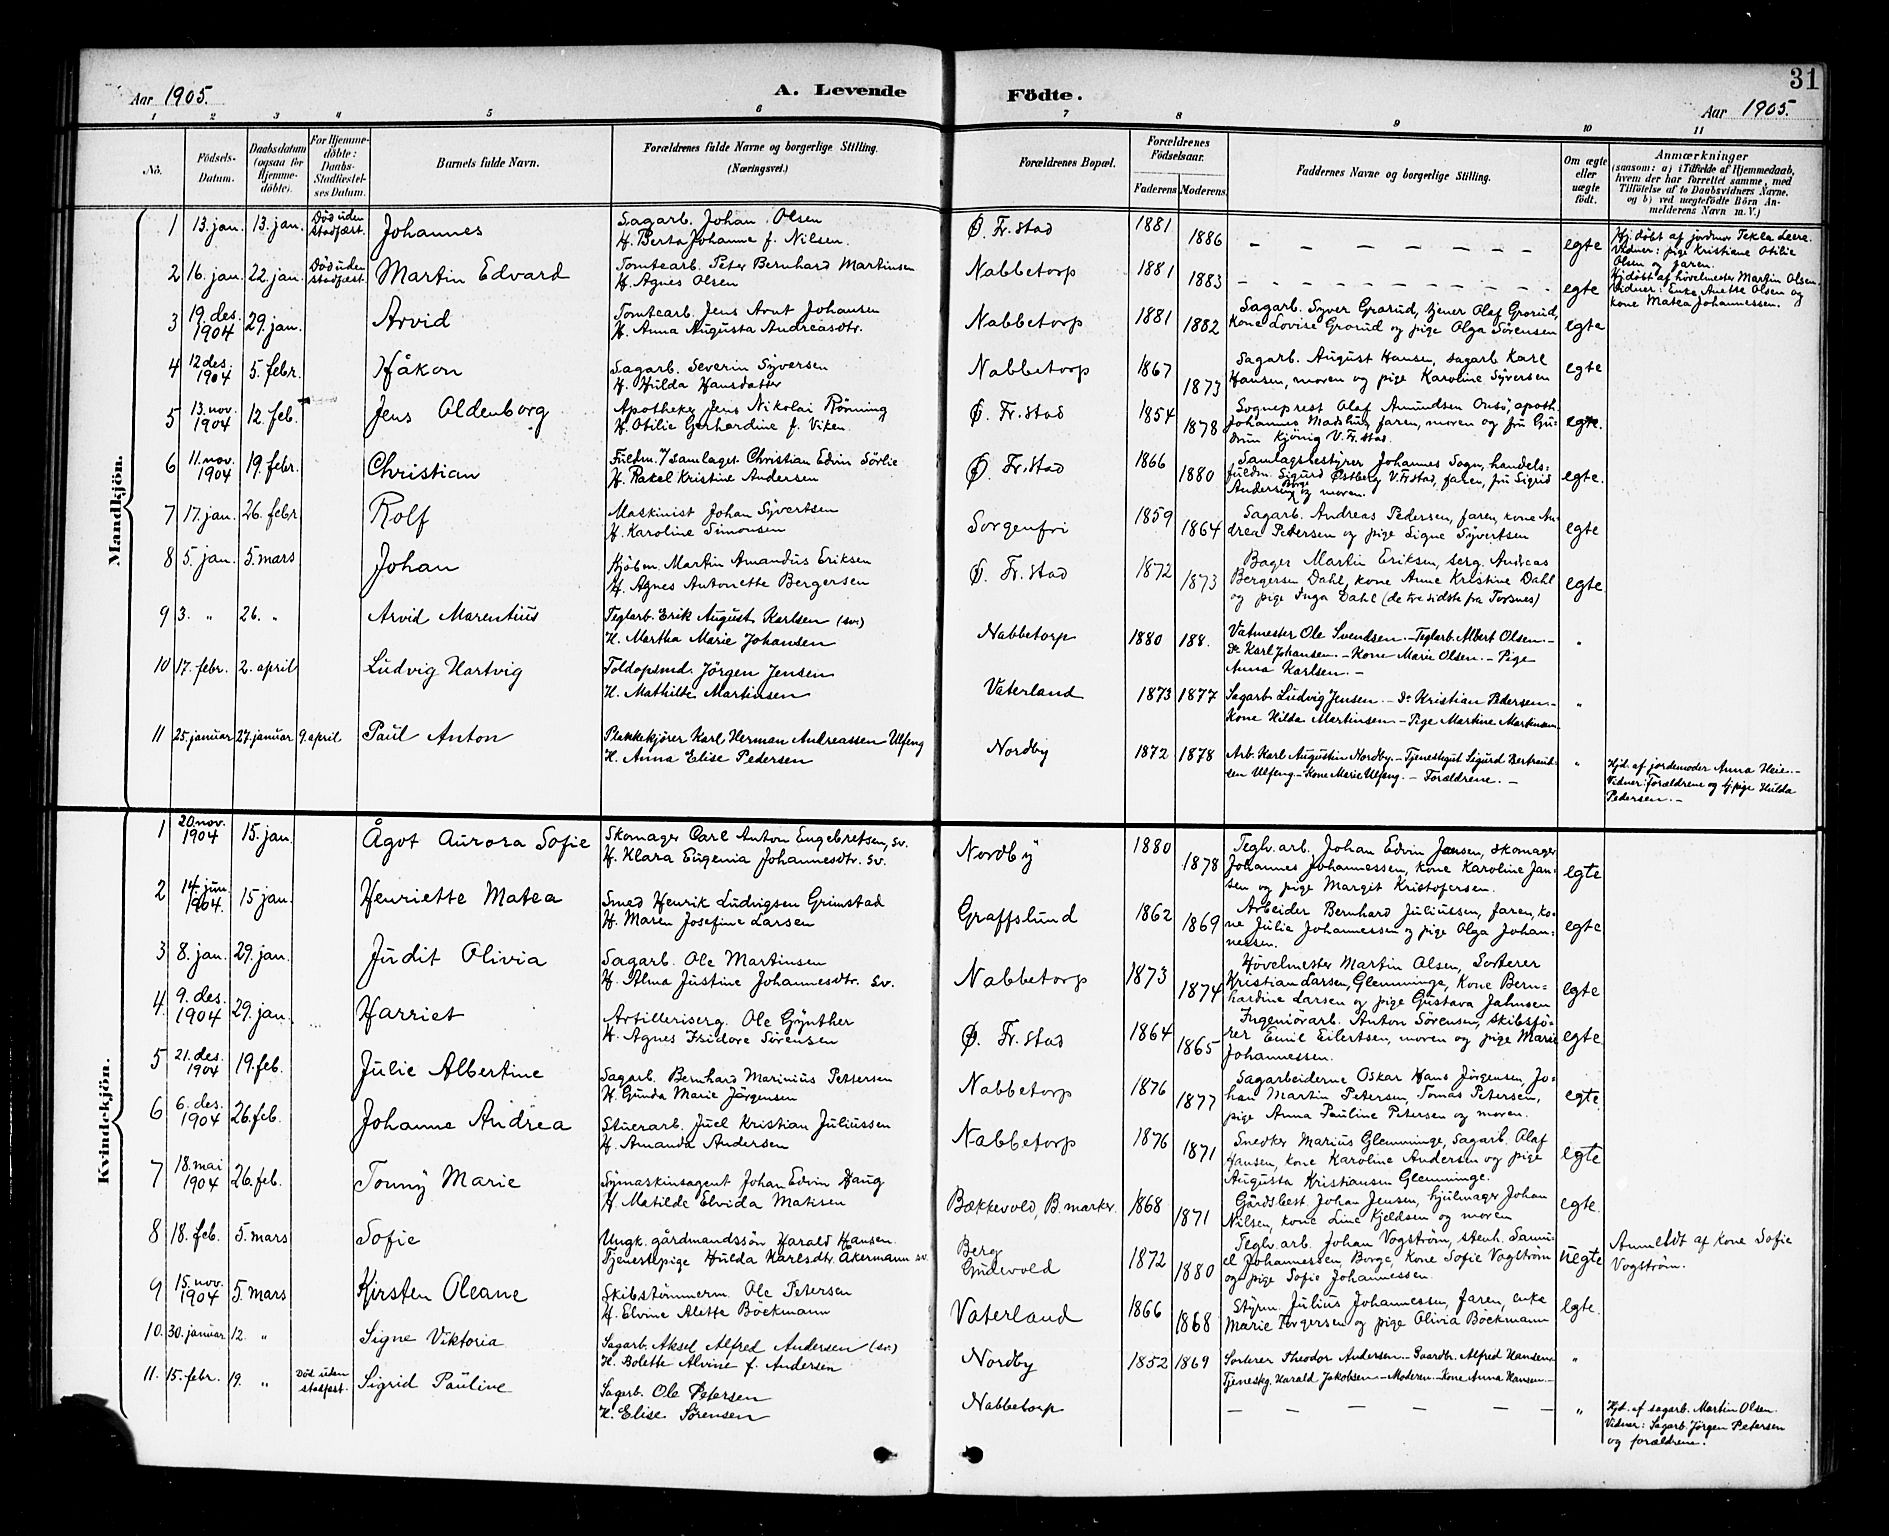 31
Aar 1905.
A. Levende Födte.
Aar 1905.
1 2 3 4 5 6 7 8 9 10 11
No.
Födsels-
Datum.
Daabsdatum
(ogsaa for
Hjemme-
döbte).
For Hjemme-
döbte:
Daabs-
Stadfæstel-
ses Datum.
Barnets fulde Navn.
Forældrenes fulde Navne og borgerlige Stilling.
(Næringsvei.)
Forældrenes Bopæl.
Forældrenes
Födselsaar.
Faderens. Moderens.
Faddernes Navne og borgerlige Stilling.
Om ægte
eller
uægte
födt.
Anmærkninger
(saasom: a) i Tilfælde af Hjemmedaab,
hvem der har forrettet samme, med
Tilföielse af to Daabsvidners Navne,
og b) ved uægtefödte Börn An-
melderens Navn m. V.)
Mandkjön.
1 13. jan. 13. jan. Död uden stadfæst. Johannes
Sagarb. Johan Olsen
H. Berta Johanne f. Nilsen.
Ö. Fr.stad 1881 1886 egte
Hj. döbt af jordmor Tekla Leere.
Vidner: pige Kristiane Otilie
Olsen og faren.
2 16. jan. 22. jan. Död uden stadfæst. Martin Edvard
Tomtearb. Peter Bernhard Martinsen
H. Agnes Olsen
Nabbetorp 1881 1883 egte
Hj. döbt af hövelmester Martin Olsen.
Vidner: Enke Anette Olsen og
kone Matea Johannessen.
3 19. des. 1904 29. jan. Arvid
Tomtearb. Jens Arnt Johansen
H. Anna Augusta Andreasdtr.
Nabbetorp 1881 1882
Sagarb. Syver Grorud, tjener Olaf Grorud,
kone Lovise Grorud og pige Olga Sörensen
egte
4 12 des. 1904 5. febr. Håkon
Sagarb. Severin Syversen
H. Hulda Hansdatter
Nabbetorp 1867 1873
Sagarb. August Hansen, sagarb Karl
Hansen, moren og pige Karoline Syversen
egte
5 13. nov. 1904 12. feb. Jens Oldenborg
Apotheker Jens Nikolai Rönning
H. Otilie Gerhardine f. Viken.
Ö. Fr.stad 1854 1878
Sogneprest Olaf Amundsen Onsö, apoth.
Johannes Madshus, faren, moren og frü Gu-
drun Kjönig V. Fr.stad.
egte.
6 11. nov. 1904 19. febr. Christian
Fuldm. i/ samlaget Christian Edvin Sörlie
H. Rakel Kristine Andersen
Ö. Fr.stad 1866 1880
Samlagsbestyrer Johannes Sogn, handels-
fuldm. Sigurd Östberg V. Fr.stad, faren, frü Sigrid
Andersen Borge og moren.
egte.
7 17. jan. 26. febr Rolf
Maskinist Johan Syvertsen
H. Karoline Simonsen
Sorgenfri 1859 1864
Sagarb. Andreas Pedersen, faren, kone An-
drea Petersen og pige Signe Syvertsen
egte
8 5. jan. 5. mars Johan
Kjöbm. Martin Amandus Eriksen
H. Agnes Antonette Bergersen
Ö. Fr.stad 1872 1873
Bager Martin Eriksen, serg. Andreas
Bergersen Dahl, kone Anne Kristine Dahl
og pige Inga Dahl (de tre sidste fra Torsnes)
egte
9 3. " 26. " Arvid Marentius
Teglarb. Erik August Karlsen (sv.)
H. Martha Marie Johansen
Nabbetorp 1880 188.
Vatmester Ole Svendsen. - Teglarb. Albert Olsen. -
Do Karl Johansen. - Kone Marie Olsen. - Pige
Anna Karlsen. -
"
10 17. febr. 2. april Ludvig Hartvig
Toldopsmd. Jörgen Jensen
H. Mathilde Martinsen
Vaterland 1873 1877
Sagarb. Ludvig Jensen. - Do Kristian Pedersen -
Kone Hilda Martinsen - Pige Martine Martinsen
"
11 25. januar 27. januar 9. april Paul Anton
Plankekjörer Karl Herman Andreassen Ulfeng
H. Anna Elise Pedersen
Nordby 1872 1878
Arb. Karl Augustin Nordby. - Tjenestegut Sigurd Bertrand-
sen Ulfeng - Kone Marie Ulfeng. - Forældrene. -
"
Hjd. af jordemoder Anna Heie. -
Vidner: Forældrene og tj.pige Hulda
Pedersen. -
Kvindekjön.
1 20. nov. 1904 15. jan. Ågot Aurora Sofie
Skomager Carl Anton Engebretsen, sv.
H. Klara Eugenia Johannesdtr. sv.
Nordby 1880 1878
Teglv. arb. Johan Edvin Jansen, skomager
Johannes Johannessen, kone Karoline Jan-
sen og pige Margit Kristofersen.
egte
2 14. jun. 1904. 15 jan. Henriette Matea
Smed Henrik Ludvigsen Grimstad
H. Maren Josefine Larsen
Graffslund 1862 1869
Arbeider Bernhard Juliussen, faren, ko-
ne Julie Johannessen og pige Olga Johan-
nessen.
egte
3 8. jan. 29. jan. Judit Olivia
Sagarb. Ole Martinsen
H. Alma Justine Johannesdtr. sv.
Nabbetorp 1873 1874
Hövelmester Martin Olsen, Sorterer
Kristian Larsen, Glemminge, Kone Bern-
hardine Larsen og pige Gustava Jahnsen
egte
4 9. des. 1904 29. jan. Harriet
Artilleriserg. Ole Gynther
H. Agnes Isidore Sörensen
Ö. Fr.stad 1864 1865
Ingeniörarb. Anton Sörensen, skibsfö-
rer Emil Eilertsen, moren og pige Marie
Johannessen.
egte
5 21. des. 1904 19. feb. Julie Albertine
Sagarb. Bernhard Marinius Pettersen
H. Gunda Marie Jörgensen
Nabbetorp 1876 1877
Sagarbeiderne Oskar Hans Jörgensen, Jo-
han Martin Petersen, Tomas Petersen,
pige Anna Pauline Petersen og moren.
egte
6 6. des. 1904 26. feb. Johanne Andrea
Stuerarb. Juel Kristian Juliussen
H. Amanda Andersen
Nabbetorp 1876 1871
Snedker Marius Glemminge, Sagarb. Olaf
Hansen, kone Karoline Andersen og pige
Augusta Kristiansen Glemminge.
egte
7 18. mai 1904 26. feb. Tonny Marie
Symaskinsagent Johan Edvin Haug
H. Matilde Elvida Matisen
Bækkevold, B.marker 1868 1871
Gårdsbest. Johan Jensen, hjulmager Johan
Nilsen, kone Line Kjeldsen og moren
egte.
8 18. feb. 5. mars Sofie
Ungk. gårdmandssön Harald Hansen.
Tjenestepige Hulda Karlsdtr. Åkermann sv.
Berg
Gudevold 1872 1880
Teglv. arb. Johan Vogström, stenh. Samu-
el Johannessen, Borge, kone Sofie Vogström
og pige Sofie Johannessen.
uegte
Anmeldt af kone Sofie
Vogström.
9 15. nov. 1904 5. mars Kirsten Oleane
Skibstömmerm. Ole Petersen
H. Elvine Alette Böckmann
Vaterland 1866 1868
Styrm. Julius Johannessen, faren, enke
Marie Torgersen og pige Olivia Böckmann
egte.
10. 30. januar 12. " Signe Viktoria
Sagarb. Aksel Alfred Andersen (sv.)
H. Bolette Alvine f. Andersen
Nordby 1852 1869
Sorterer Theodor Andersen - Gaardbr. Alfred Hansen -
Tjenesteg. Harald Jakobsen - Moderen - Kone Anna Hansen -
"
11. 15. febr. 19. " Död uden stadfæst. Sigrid Pauline
Sagarb. Ole Petersen
H. Elise Sörensen
Nabbetorp
"
Hjd. af sagarb. Martin Olsen.
Vidner: Sagarb. Jörgen Petersen
og forældrene.